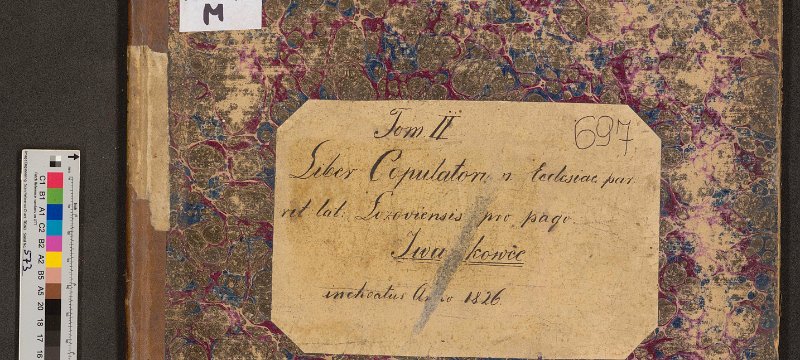 M
Tom II
697
Liber Copulatorum Ecclesiae par
rit lat. Lozoviensis pro pago
Iwa kowce
inchoatus Anno 1826.
C1 B1 A1 C2 B2 A2 B5 A5 20 18 17 16
573